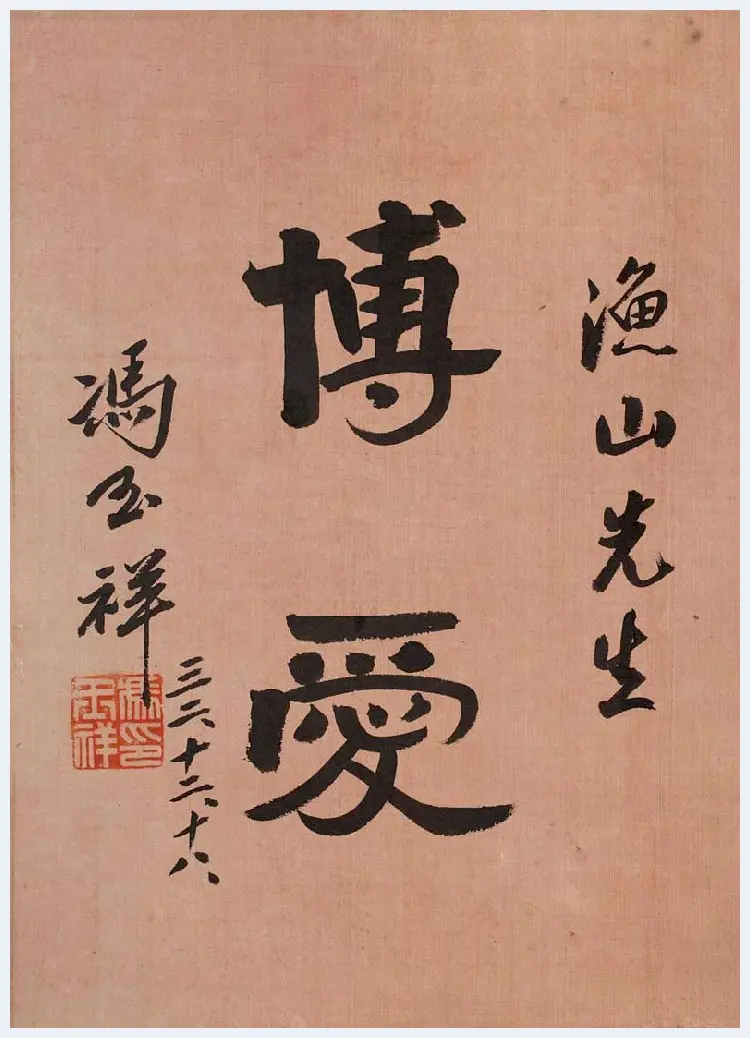 漁山先生
博愛
三二、十二、十八
馮玉祥
馮印玉祥